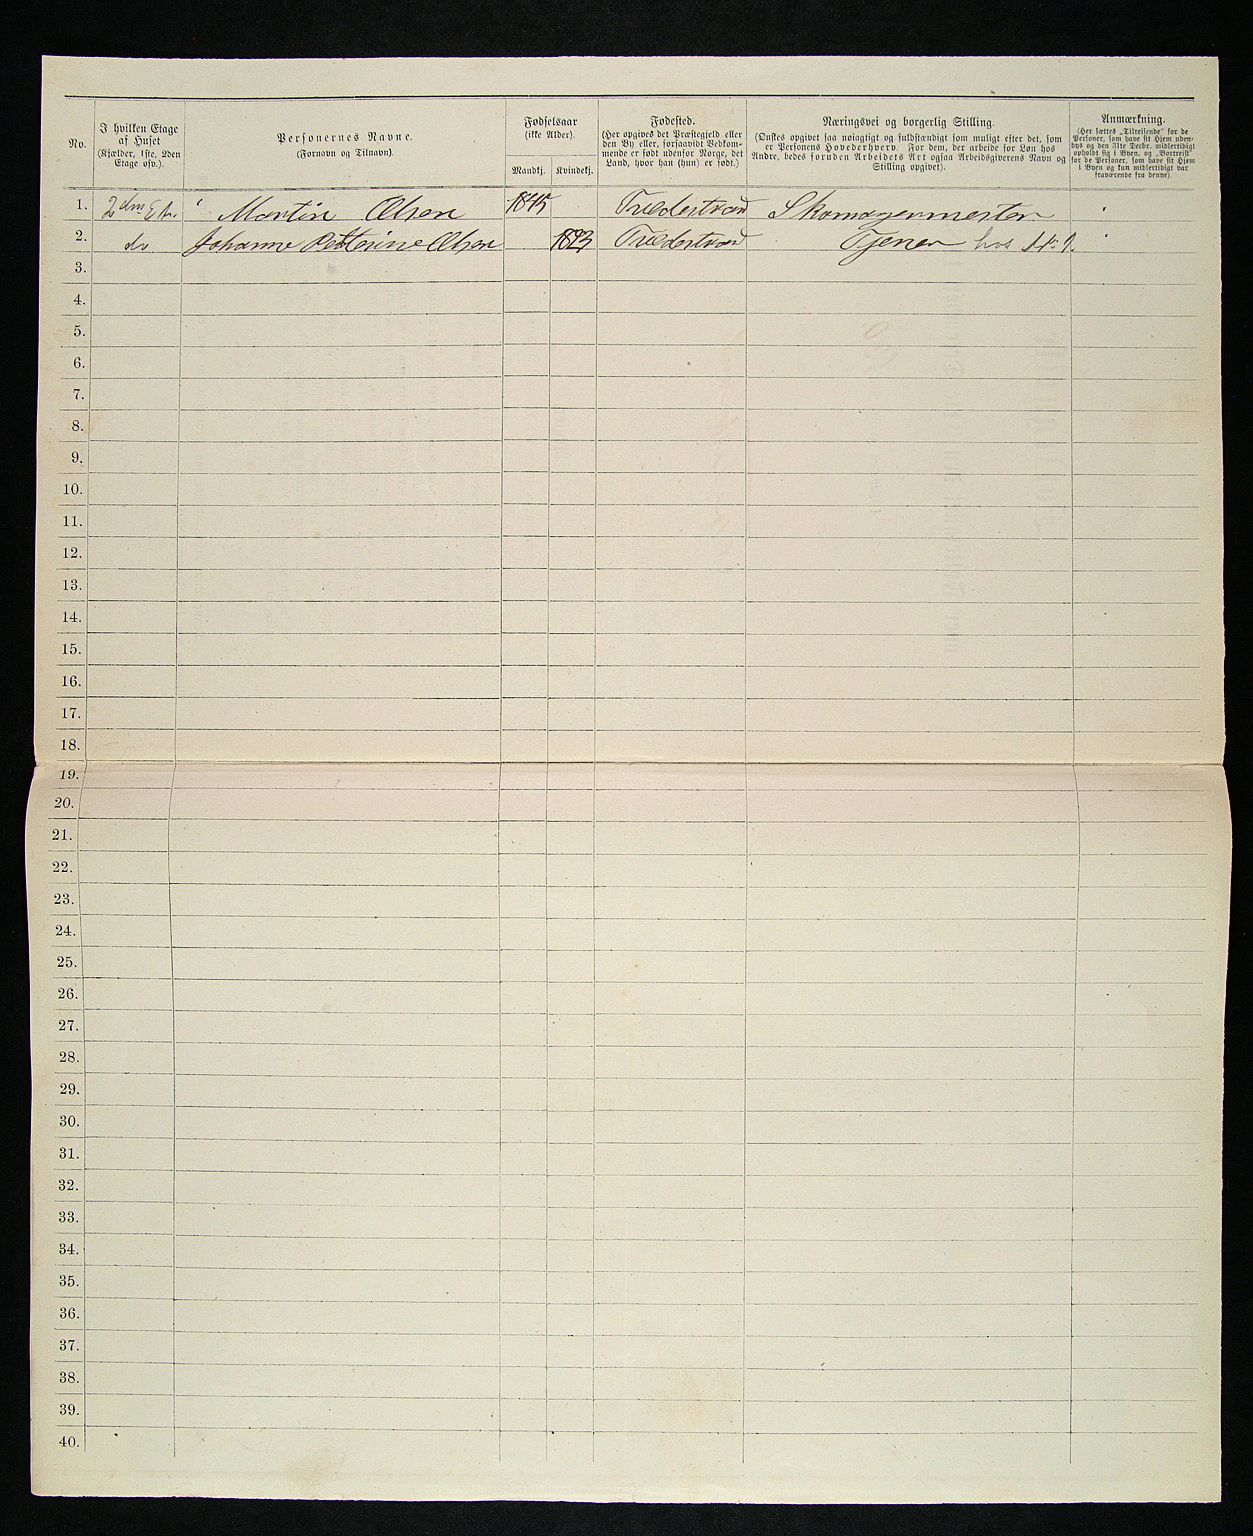 No.
I hvilken Etage
af Huset
(Kjælder, 1ste, 2den
Etage osv.).
Personernes Navne.
(Fornavn og Tilnavn).
Fødselsaar
(ikke Alder).
Mandkj.
Kvindekj.
Fødested.
(Her opgives det Præstegjeld eller
den By eller, forsaavidt Vedkom-
mende er født udenfor Norge, det
Land, hvor han (hun) er født.)
Næringsvei og borgerlig Stilling.
(Ønskes opgivet saa nøiagtigt og fuldstændigt som muligt efter det, som
er Personens Hovederhverv. For dem, der arbeide for Løn hos
Andre, bedes foruden Arbeidets Art ogsaa Arbeidsgiverens Navn og
Stilling opgivet).
Anmærkning.
(Her sættes „Tilreisende" for de
Personer, som have sit Hjem uden-
bys og den 31te Decbr. midlertidigt
opholdt sig i Byen, og „Bortreist"
for de Personer, som have sit Hjem
i Byen og kun midlertidigt var
fraværende fra denne).
1. 2den Eta. Martin Olsen 1845 Tvedestrand Skomagermester
2. do Johanne Petterine Olsen Tvedestrand Tjener hos No 1.
3.
4.
5.
6.
7.
8.
9.
10.
11.
12.
13.
14.
15.
16.
17.
18.
19.
20.
21.
22.
23.
24.
25.
26.
27.
28.
29.
30.
31.
32.
33.
34.
35.
36.
37.
38.
39.
40.